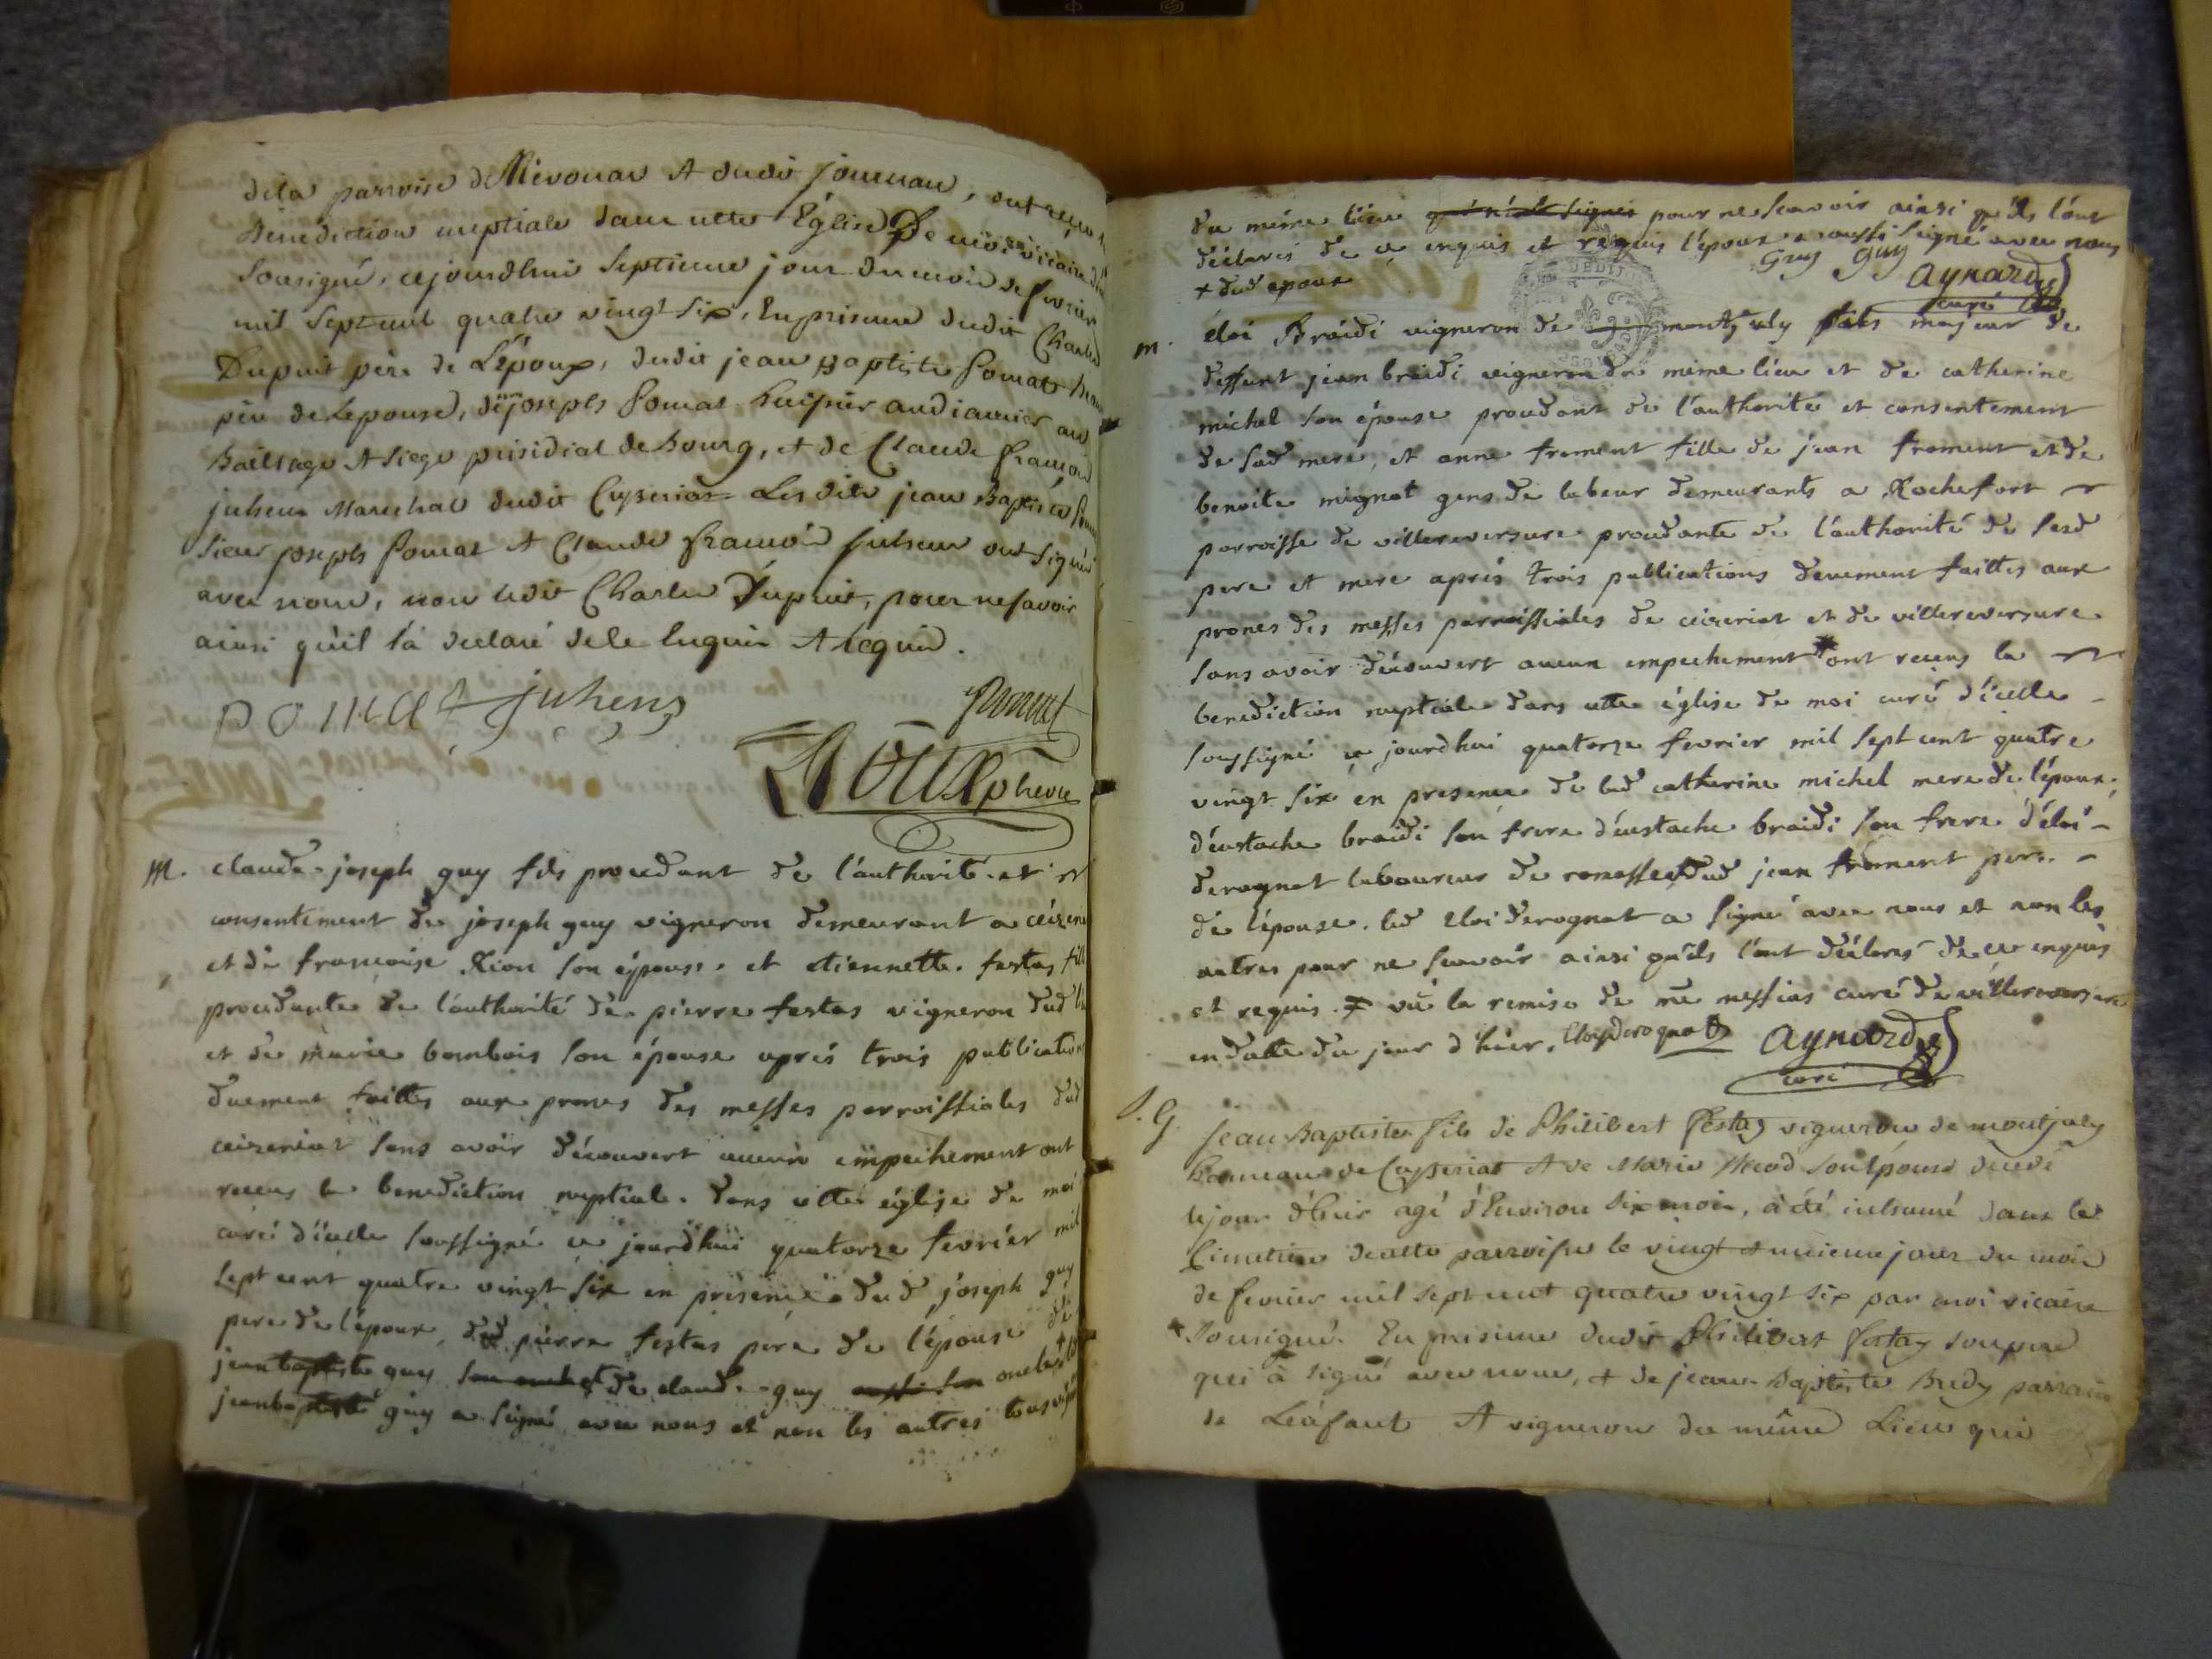 dela parroise de Mivonar et dudit journau, ont reçu la
Bénédiction nuptiale dans cette Église De moi vicaire
Sousigné, cejourdhui septieme jour du mois de fevrier
mil sept cent quatre vingt six, En présence dudit Charles
Dupuit père de L'époux, dudit jean Baptiste ponsat
père de Lepouse, de joseph ponsat huissier audiancier au
Bailliage et siege présidial de Bourg, et de Claude François
juhem Marechal dudit Cyseriat Les dits jean Baptiste
sieur joseph ponsat et Claude François juhem ont signé
avec nous, non ledit Charles Dupuit, pour ne savoir
ainsi qu'il l'a déclaré de le enquis et requis.
ponsat juhem
Roux
M. claude-joseph guy fils proudant de l'authorité et
consentement de joseph guy vigneron demeurant a
et de francoise Rion son épouse. et etiennette festas
proudante de l'authorité de pierre festas vigneron dud
et de marie bombois son épouse aprés trois publications
duement faittes aux prones des messes parroissiales dud
ceizeriat sans avoir découvert aucun empechement ont
receus la benediction nuptiale. dans cette église de moi
curé d'icelle soussigné ce jourdhui quatorze fevriér mil
sept cent quatre vingt six en présence dud joseph guy
pere de l'époux, dud pierre festas pére de l'épouse de
jean baptiste guy de claude guy oncles
jean baptiste guy a signé avec nous et non les autres tous
du même lieu qui n'ont signés pour ne scavoir ainsi qu'ils l'ont
déclarés de ce enquis et requis l'époux a aussi signé avec nous
+ dud epoux Guy guy
aynard
curé
m. éloi Braidi vigneron de montjuly fils majeur de
deffunt jean braidi vigneron du même lieu et de catherine
michel son épouse proudant de l'authorité et consentement
de sad mere, et anne froment fille de jean froment et de
benoite mignot gens de labeur demeurants a Rochefort
parroisse de villereversure proudante de l'authorité de sesd
pere et mere aprés trois publications deuement faittes aux
prones des messes parroissiales de ceizeriat et de villereversure
sans avoir découvert aucun empechement # ont receus la
benediction nuptiale dans cette église de moi curé d'icelle
soussigné ce jourdhui quatorze fevrier mil sept cent quatre
vingt six en presence de lad catherine michel mere de l'époux,
d'eustache braidi son frere d'eustache braidi son frere d'éloi
derognat laboureur de ramasse dud jean froment pere
de l'épouse. led eloi derognat a signé avec nous et non les
autres pour ne scavoir ainsi qu'ils l'ont déclarés de ce enquis
et requis. # vû la remise de mre messias curé de villereversure
en datte du jour d'hier. Eloy derognat aynard
curé
S. G. jean Baptiste fils de Philibert festaz vigneron de montjuly
hameau de Ceyseriat et de Marie son Epouse décédé
le jour d'hier agé d'Environ six mois, a été inhumé dans le
Cimetière de cette parroisse le vingt et unieme jour du mois
de fevrier mil sept cent quatre vingt six par moi vicaire
sousigné. En presence dudit Philibert festaz son pere
qui à signé avec nous, et de jean Baptiste Bredy parrain
de L'enfant et vigneron du même Lieu qui